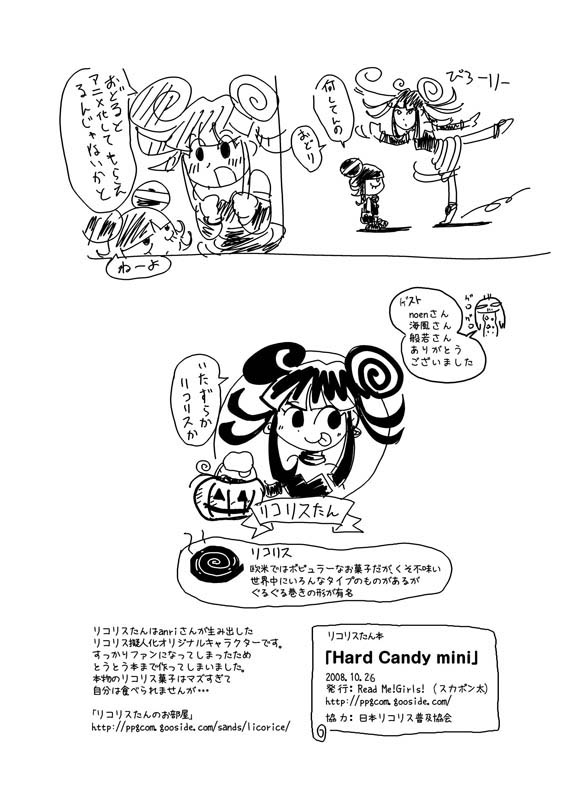 びろーりー
何してんの
おどり
おどると
アニメ化してもらえ
るんじゃないかと
ねーよ
ゲスト
noenさん
海風さん
般若さん
ありがとう
ございました
ゲロゲロ
いたずらか
リコリスか
リコリスたん
リコリス
欧米ではポピュラーなお菓子だが、くそ不味い
世界中にいろんなタイプのものがあるが
ぐるぐる巻きの形が有名
リコリスたんはanriさんが生み出した
リコリス擬人化オリジナルキャラクターです。
すっかりファンになってしまったため
とうとう本まで作ってしまいました。
本物のリコリス菓子はマズすぎて
自分は食べられませんが・・・
「リコリスたんのお部屋」
http://ppgcom.gooside.com/sands/licorice/
リコリスたん本
「Hard Candy mini」
2008.10.26
発行：Read Me!Girls! (スカポン太)
http://ppgcom.gooside.com/
協力：日本リコリス普及協会